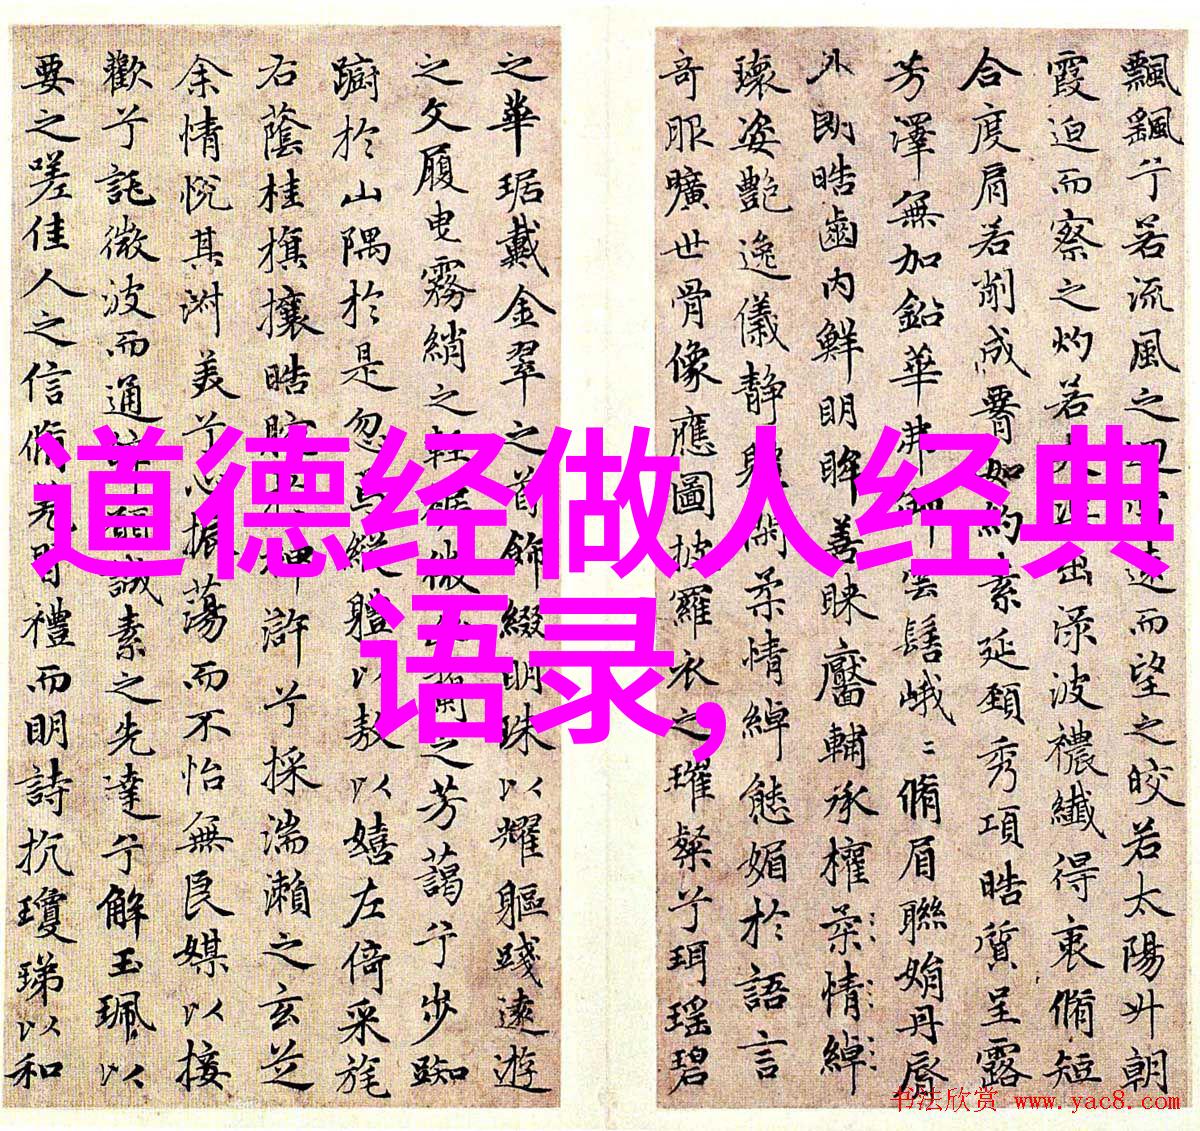 飄飖兮若流風之遠而望之皎若太陽升朝
霞迫而察之灼若出渌波穠纖得衷脩短
合度肩若削成𦝫如約素延頸秀項皓質呈露
芳澤無加鉛華弗御雲髻峨〻脩眉聯娟丹脣
外朗皓齒内鮮明眸善睞靨輔承權柔情綽
瓌姿艷逸儀静體閑柔情綽態媚於語言
奇服曠世骨像應圖披羅衣之璀粲兮珥瑤碧
之華琚戴金翠之首飾綴明珠以耀軀踐遠遊
之文履曳霧綃之輕裾微之芳藹兮步踟
蹰於山隅於是忽焉縱體以敖以嬉左倚采旄
右蔭桂旗攘皓腕神滸兮採湍瀨之玄芝
余情悅其淑美兮心振蕩而不怡無良媒以接
歡兮託微波而通誠素之先達兮解玉珮以
要之嗟佳人之信脩羌習禮而明詩抗瓊珶以和
道德经做人经典
语录,
书法欣赏 www.yac8.com